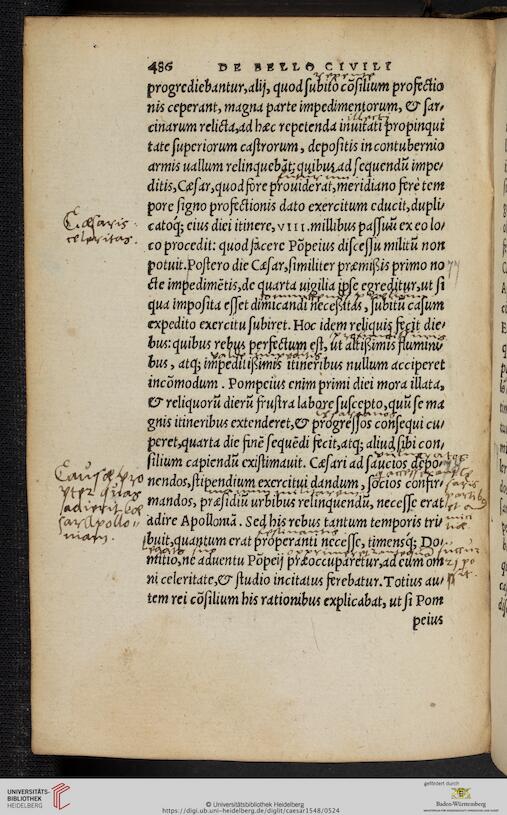 486 DE BELLO CIVILI
progrediebantur, alij, quod subito cõsilium profectio
nis ceperant, magna parte impedimentorum, & sar,
cinarum relicta, ad hæc repetenda inuitati propinqui
tate superiorum castrorum, depositis in contubernio
armis uallum relinquebāt; quibus ad sequendū impe,
ditis, Cæsar, quod fore prouiderat, meridiano fere tem
pore signo profectionis dato exercitum educit, dupli,
catoq; eius diei itinere, VIII. millibus passuū ex eo lo,
co procedit: quod facere Põpeius discessu militū non
potuit. Postero die Cæsar, similiter præmißis primo no
cte impedimētis, de quarta uigilia ipse egreditur, ut si
qua imposita esset dimicandi necessitas, subitū casum
expedito exercitu subiret. Hoc idem reliquis fecit die,
bus: quibus rebus perfectum est, ut altißimis fluminu
bus, atq; impeditißimis itineribus nullum acciperet
incõmodum. Pompeius enim primi diei mora illata,
& reliquorū dierū frustra labore suscepto, quū se ma
gnis itineribus extenderet, & progressos consequi cu,
peret, quarta die finē sequēdi fecit, atq; aliud sibi con,
silium capiendū existimauit. Cæsari ad saucios depo
nendos, stipendium exercitui dandum, socios confir,
mandos, præsidiū urbibus relinquendū, necesse erat
adire Apolloniā. Sed his rebus tantum temporis tri
buit, quantum erat properanti necesse, timensq; Do,
mitio, ne aduentu Põpeij præoccuparetur, ad eum om
ni celeritate, & studio incitatus ferebatur. Totius au,
tem rei cõsilium his rationibus explicabat, ut si Pom
peius
Cæsaris
celeritas.
77
78
Causæ pro
pter quas
adierit Cæ
sar Apollo
niam.
UNIVERSITÄTS-
BIBLIOTHEK
HEIDELBERG
© Universitätsbibliothek Heidelberg
https://digi.ub.uni-heidelberg.de/diglit/caesar1548/0524
gefördert durch
Baden-Württemberg